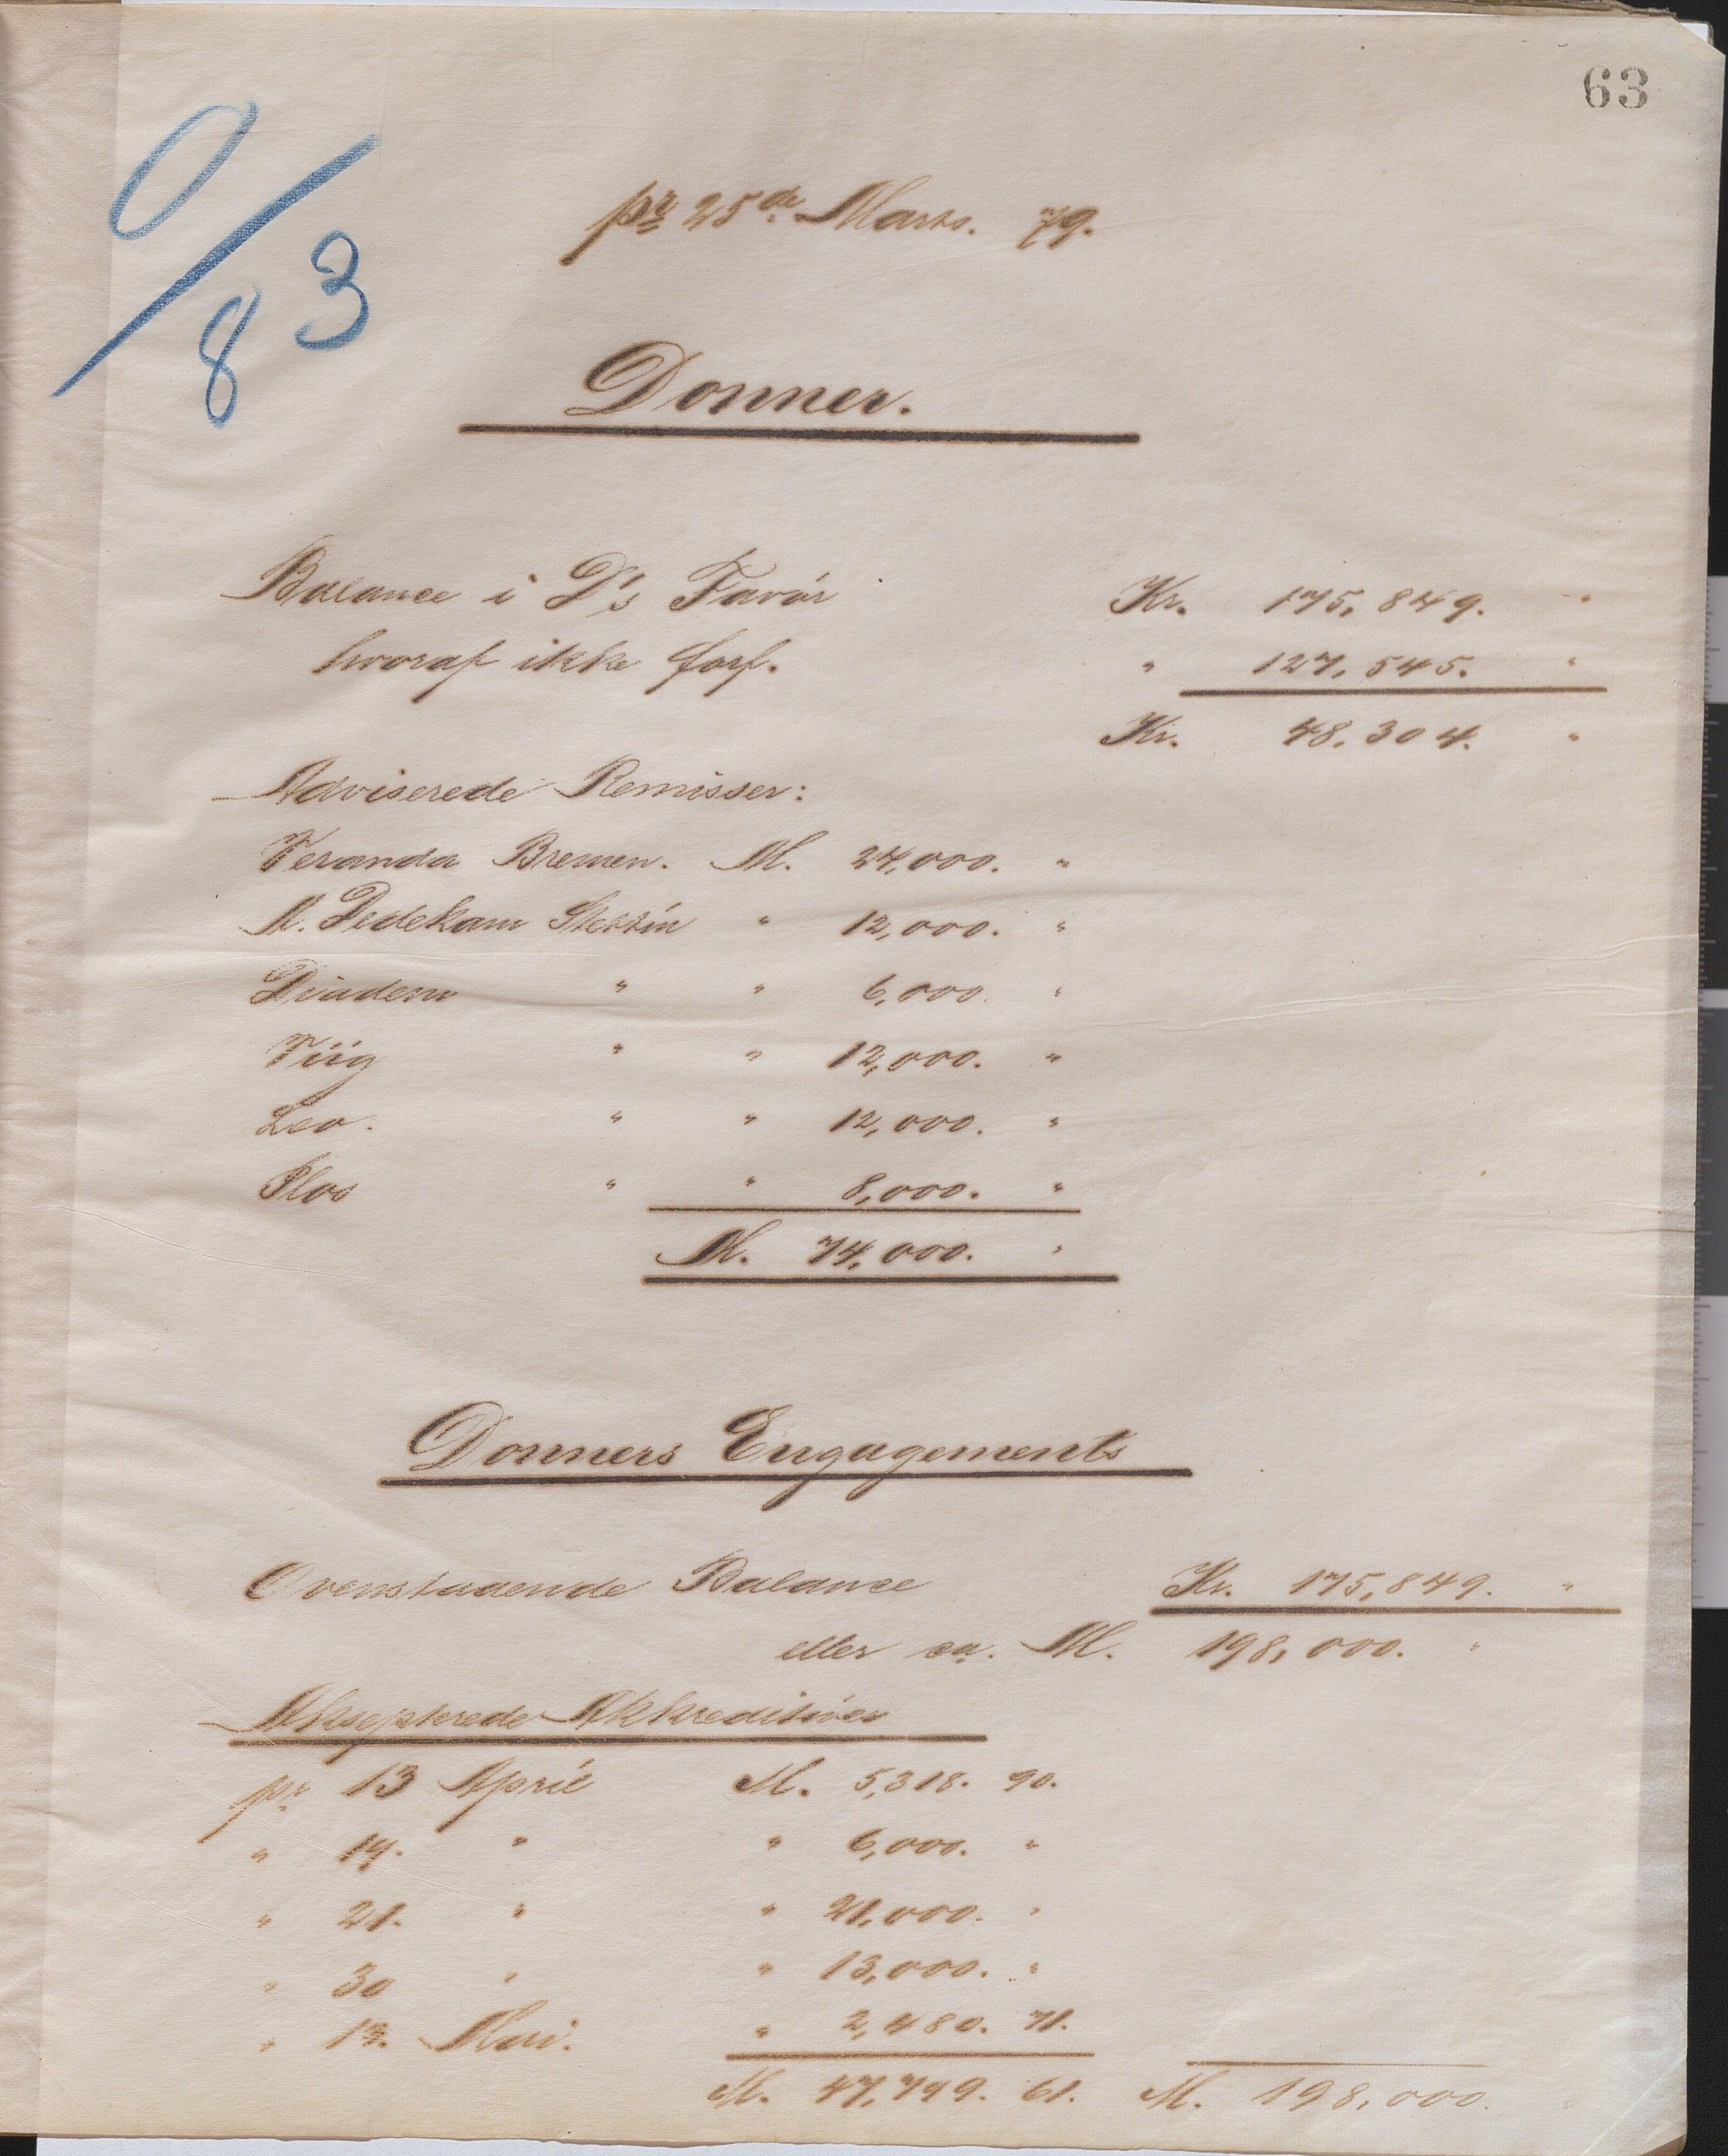 63
0/83
pr 25de Marts. 79.
Donner.
Balance i D's Favör Kr. 175,849. "
hvoraf ikke forf. " 127,545. "
Kr. 48,304. "
Adviserede Remisser:
Veranda Bremen. M. 24,000. "
M. Dedekam Stettin " 12,000. "
Diadem " " 6,000. "
Viig " " 12,000. "
Leo. " " 12,000. "
" " 8,000. "
M. 74,000. "
Donners Engagements
Ovenstaaende Balance Kr. 175,849. "
eller ca. M. 198,000. "
Aksepterede Akkreditiver
pr. 13 April M. 5,318. 90.
" 19. " " 6,000. "
" 21. " " 21,000. "
" 30 " " 13,000. "
" 13. Mai. " 2,480. 71.
M. 47,799. 61. M. 198,000. "